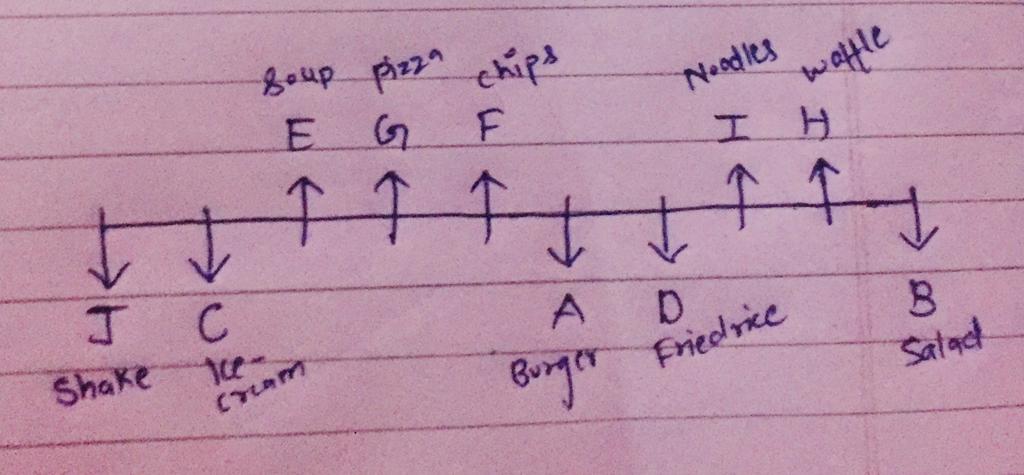 Soup pizza chips Noodles waffle
E G F I H
J C A D B
Shake Ice- Burger Friedrice Salad
cream